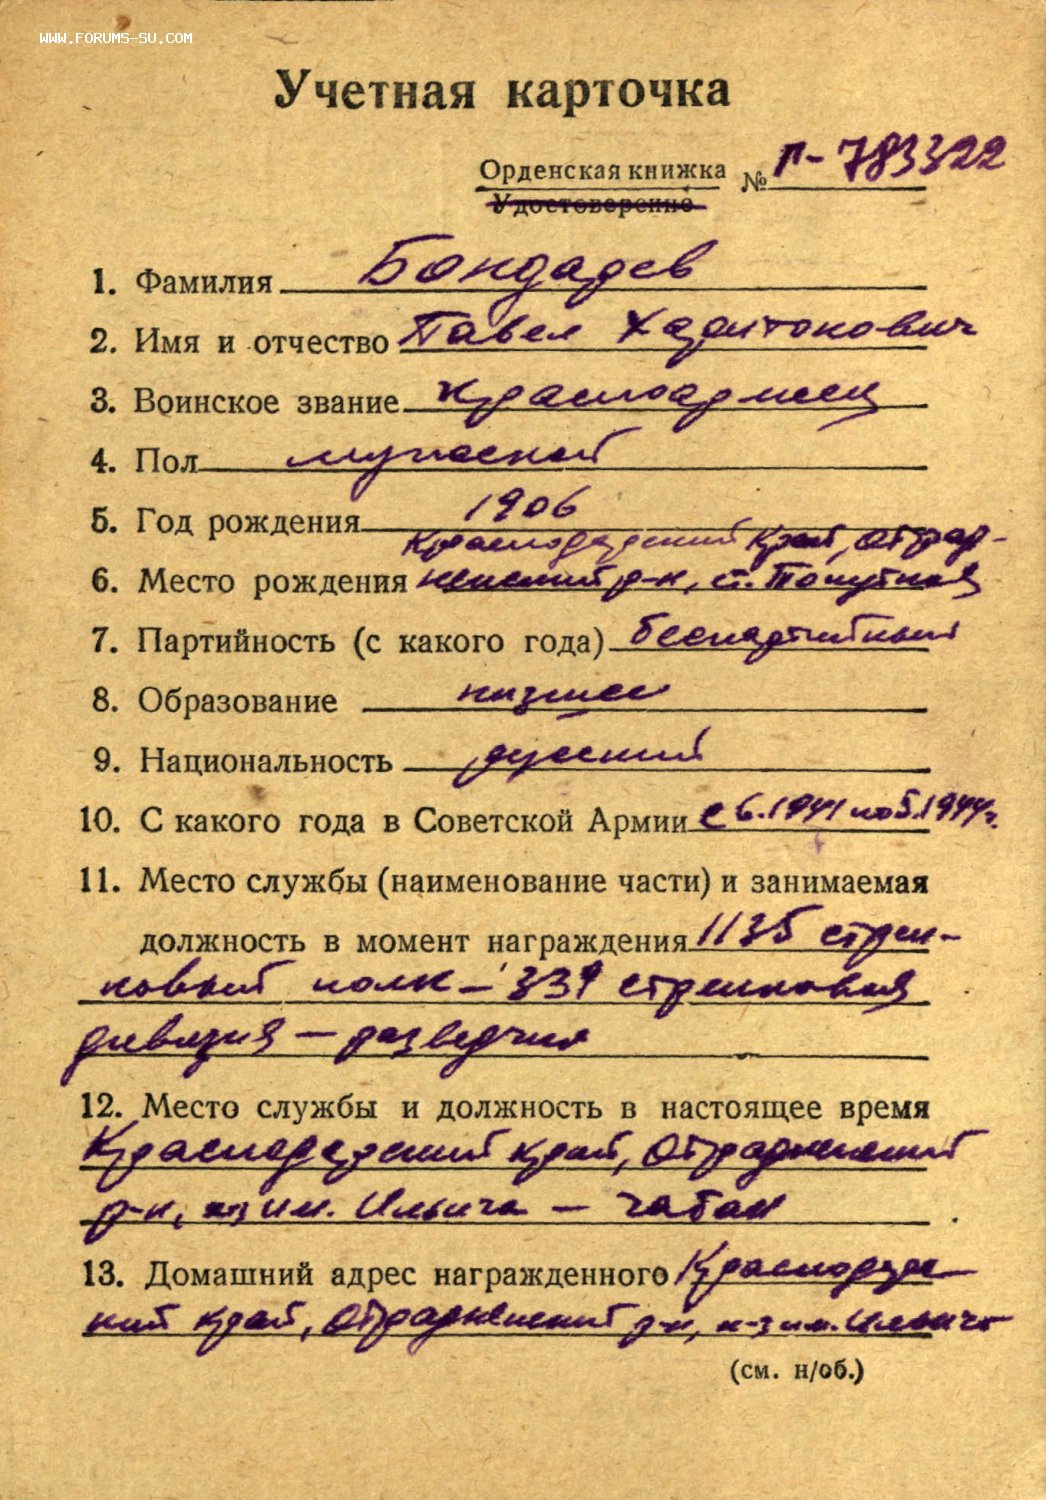 WWW.FORUMS-SU.COM
Учетная карточка
Орденская книжка № П-783322
Удостоверение
1. Фамилия Бондарев
2. Имя и отчество Павел Харитонович
3. Воинское звание красноармеец
4. Пол мужской
5. Год рождения 1906
Краснодарский край, Отрад-
6. Место рождения ненский р-н, ст. Попутная
7. Партийность (с какого года) беспартийный
8. Образование низшее
9. Национальность русский
10. С какого года в Советской Армии с 6.1941 по 5.1944г.
11. Место службы (наименование части) и занимаемая
должность в момент награждения 1135 стрел-
ковый полк – 339 стрелковая
дивизия – разведчик
12. Место службы и должность в настоящее время
Краснодарский край, Отрадненский
р-н, к-з им. Ильича – чабан
13. Домашний адрес награжденного Краснодарс-
кий край, Отрадненский р-н, к-з им. Ильича
(см. н/об.)